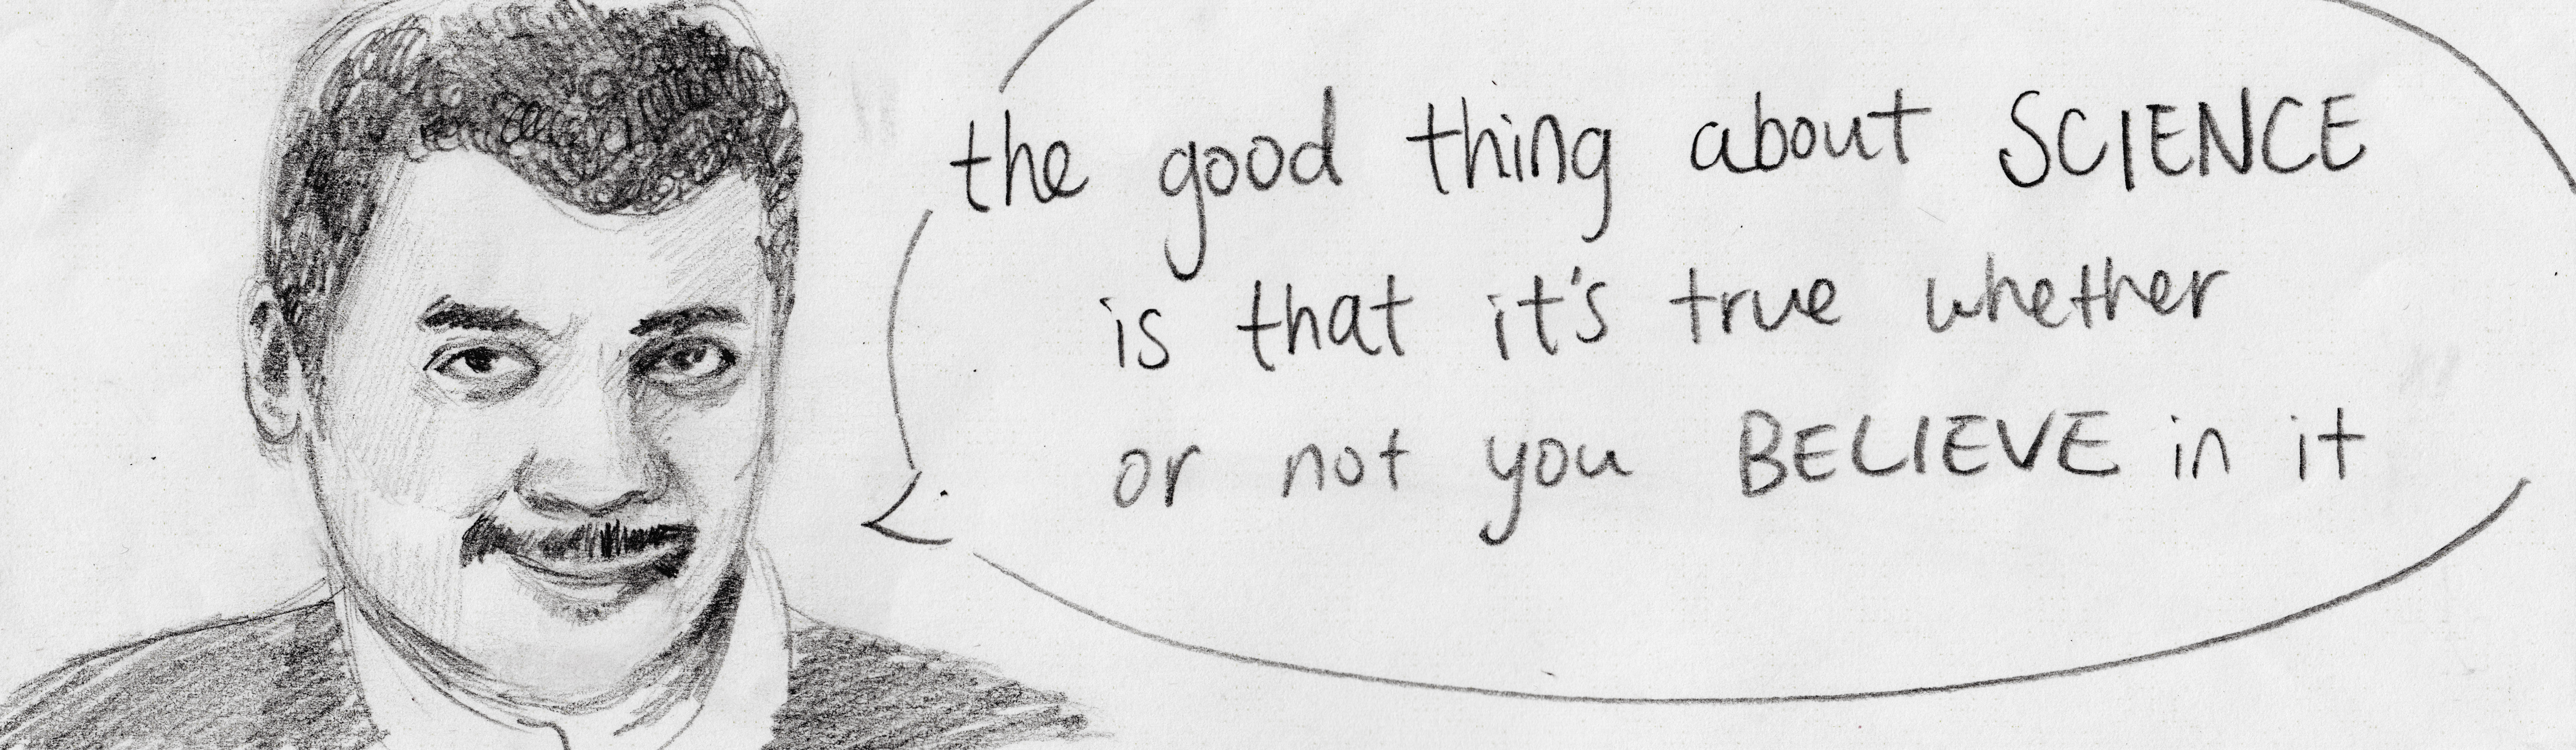 the good thing about SCIENCE
is that it's true whether
or not you BELIEVE in it